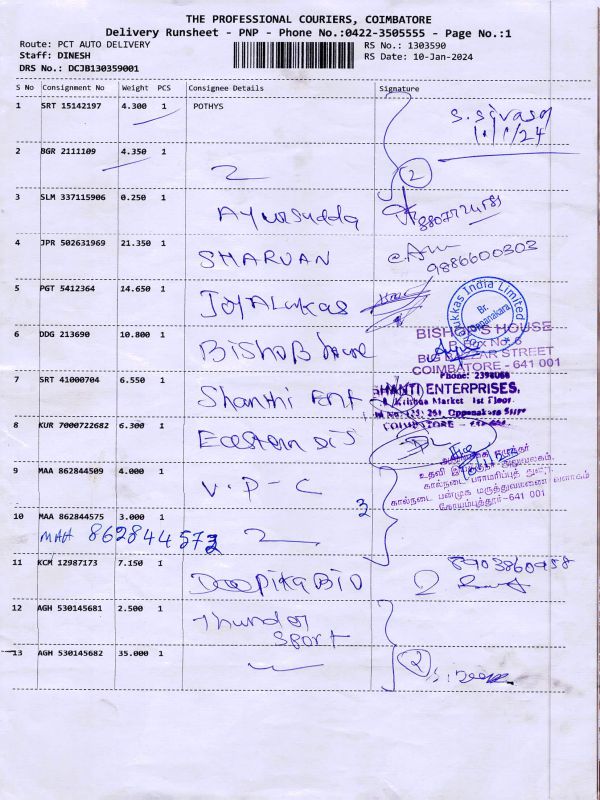 THE PROFESSIONAL COURIERS, COIMBATORE
Delivery Runsheet - PNP - Phone No.:0422-3505555 - Page No.:1
Route: PCT AUTO DELIVERY
RS No.: 1303590
Staff: DINESH
RS Date: 10-Jan-2024
DRS No.: DCJB130359001
S No Consignment No Weight PCS Consignee Details Signature
1 SRT 15142197 4.300 1 POTHYS
1/1/24
2 BGR 2111109 4.350 1
2
3 SLM 337115906 0.250 1
4 JPR 502631969 21.350 1 SMARVAN
9886600303
5 PGT 5412364 14.650 1 JoyALukas
ukkas India Limited
Br.
6 DDG 213690 10.800 1 BishoB house
BISHOP'S HOUSE
P. Box No. 6
BIG BAZAAR STREET
COIMBATORE - 641 001
Phone: 2398068
7 SRT 41000704 6.550 1 Shanthi Ent
HANTI ENTERPRISES,
Krishna Market 1st Floor.
COIMBATORE
8 KUR 7000722682 6.300 1 Eastern
உதவி இயக்குநர் அலுவலகம்,
கால்நடை பராமரிப்புத்
கால்நடை பன்முக மருத்துவமனை வளாகம்
கோயம்புத்தூர்-641 001
9 MAA 862844509 4.000 1 V.P-C
3
10 MAA 862844575 3.000 1
MAA 862844573
11 KCM 12987173 7.150 1 Deepika BID
8903860958
12 AGH 530145681 2.500 1 Thunder
Sport
13 AGH 530145682 35.000 1
2